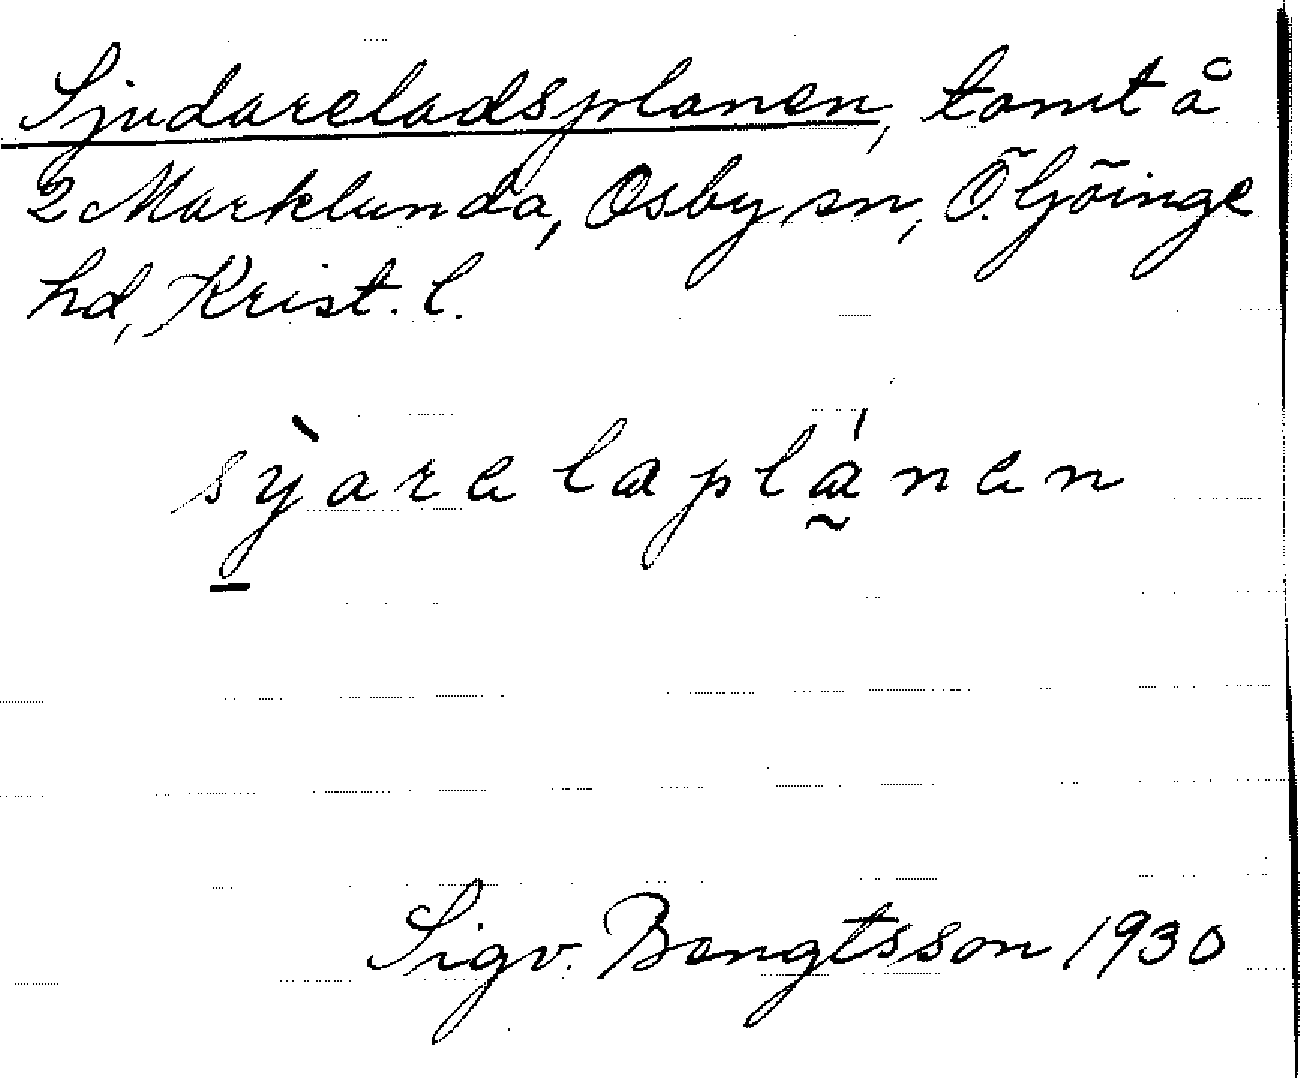 Sjudareladsplanen, tomt å
2 Marklunda, Osby sn, Ö. Göinge
hd, Krist. l.
sỳarelaplánen
Sigv. Bengtsson 1930